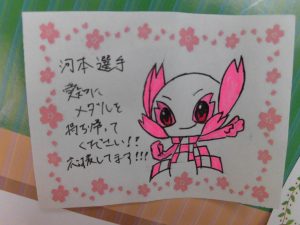 河本選手
メダルを
持ち帰って
ください!!
応援してます!!!